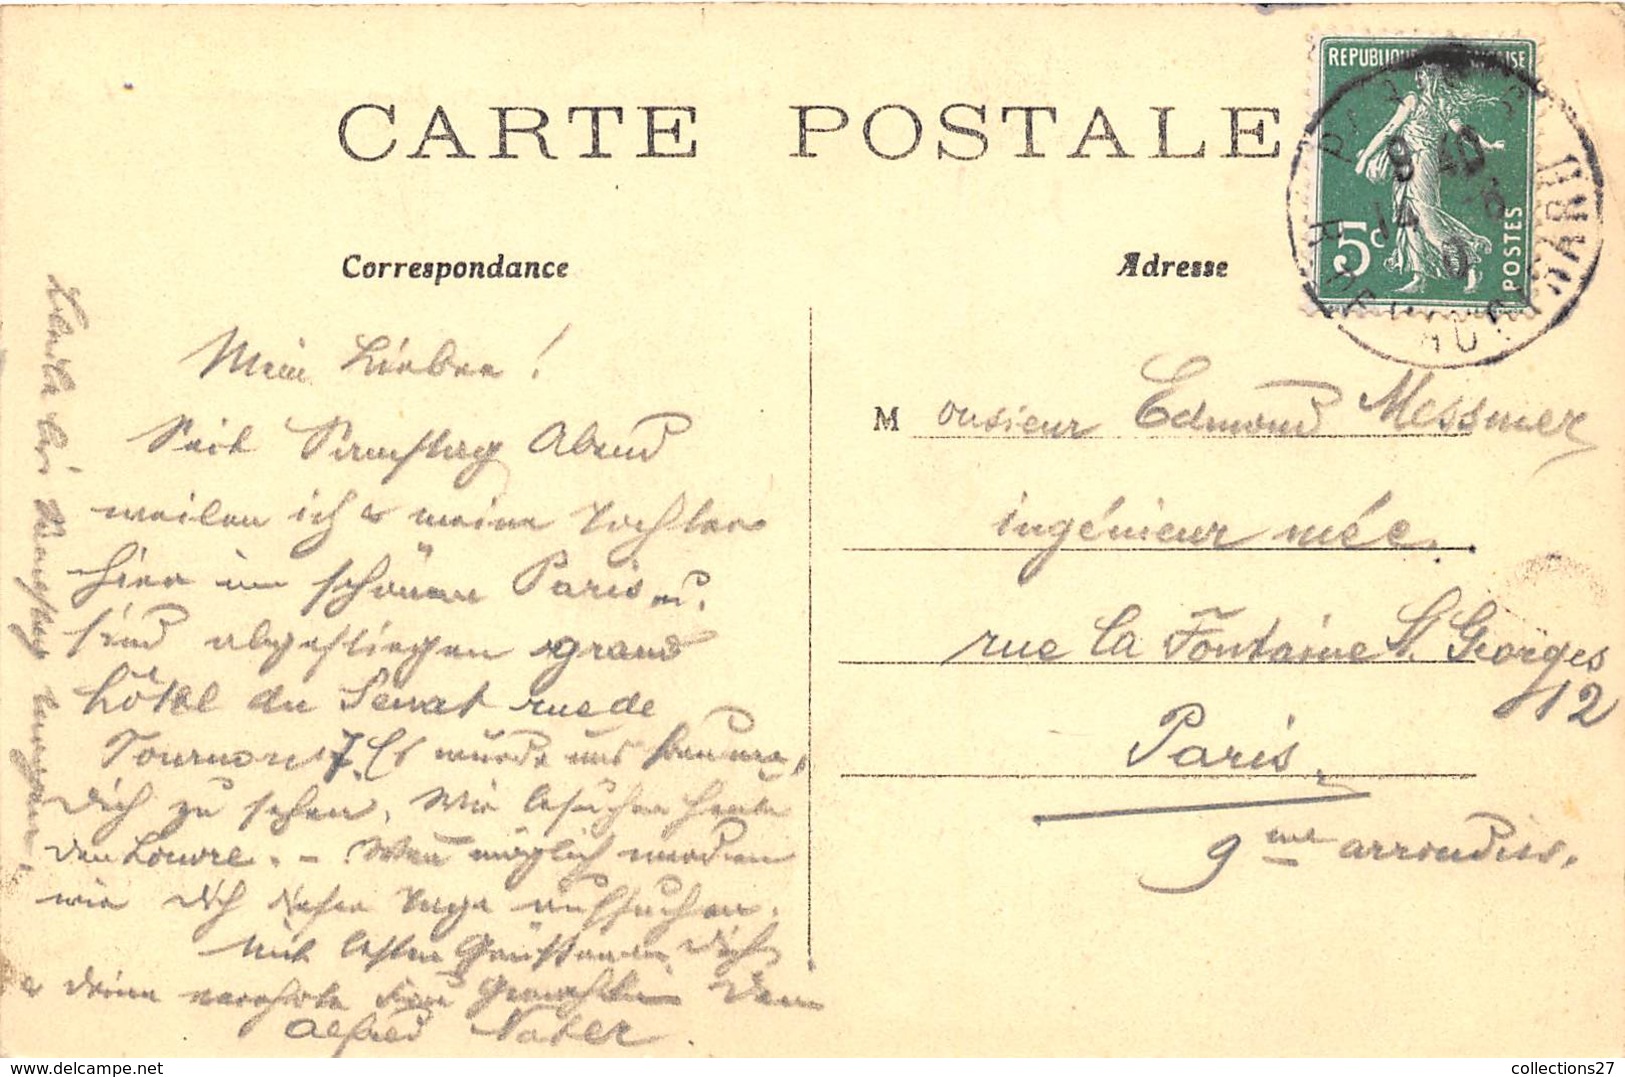 CARTE POSTALE
Correspondance
Adresse
REPUBLIQUE FRANÇAISE
5c
POSTES
9 40
14
Mein Lieber!
Seit Samstag Abend
weilen ich & meine Tochter
hier im schönen Paris u.
sind abgestiegen grand
hôtel du Senat rue de
Tournon 7. Es würde uns freuen,
Dich zu sehen. Wir besuchen heute
den Louvre. – Wenn möglich werden
wir Dich dieser Tage aufsuchen.
Mit besten Grüssen an Dich
& deine verehrte Frau Gemahlin Dein
Alfred Nater.
Monsieur Edmond Messmer
ingénieur méc.
rue La Fontaine St. Georges
12
Paris.
9me arrondiss.
collections27